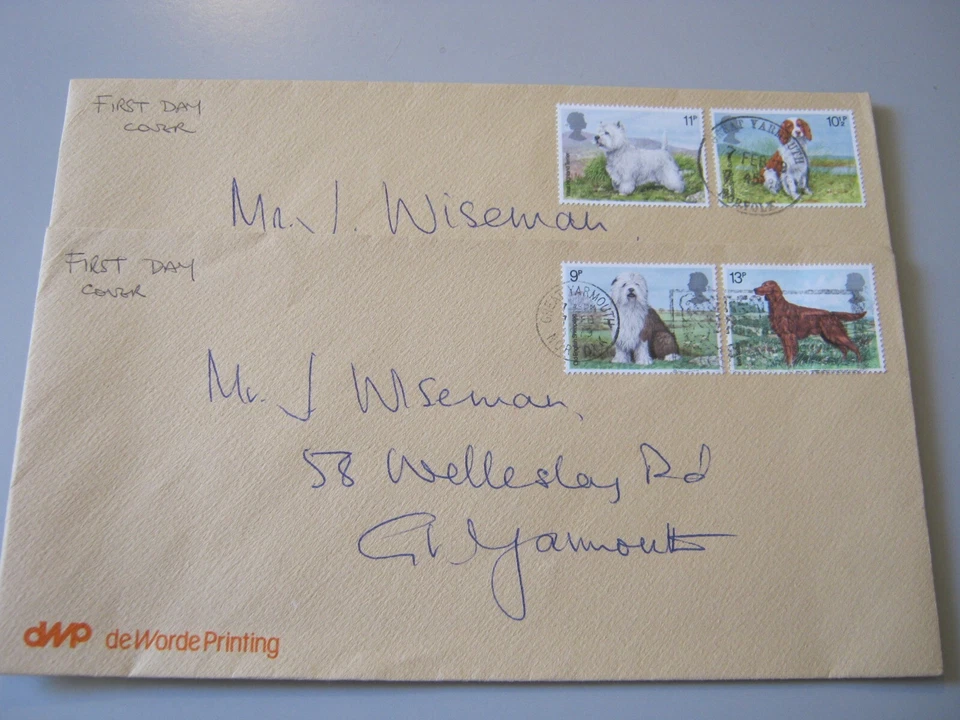 FIRST DAY
COVER
11P
10½P
GREAT YARMOUTH
7 FEB
NORFOLK
Mr. J. Wiseman.
FIRST DAY
COVER
9P
13P
GREAT YARMOUTH
FEB
NORFOLK
Mr. J Wiseman,
58 Wellesley Rd
Gt. Yarmouth
dWP de Worde Printing